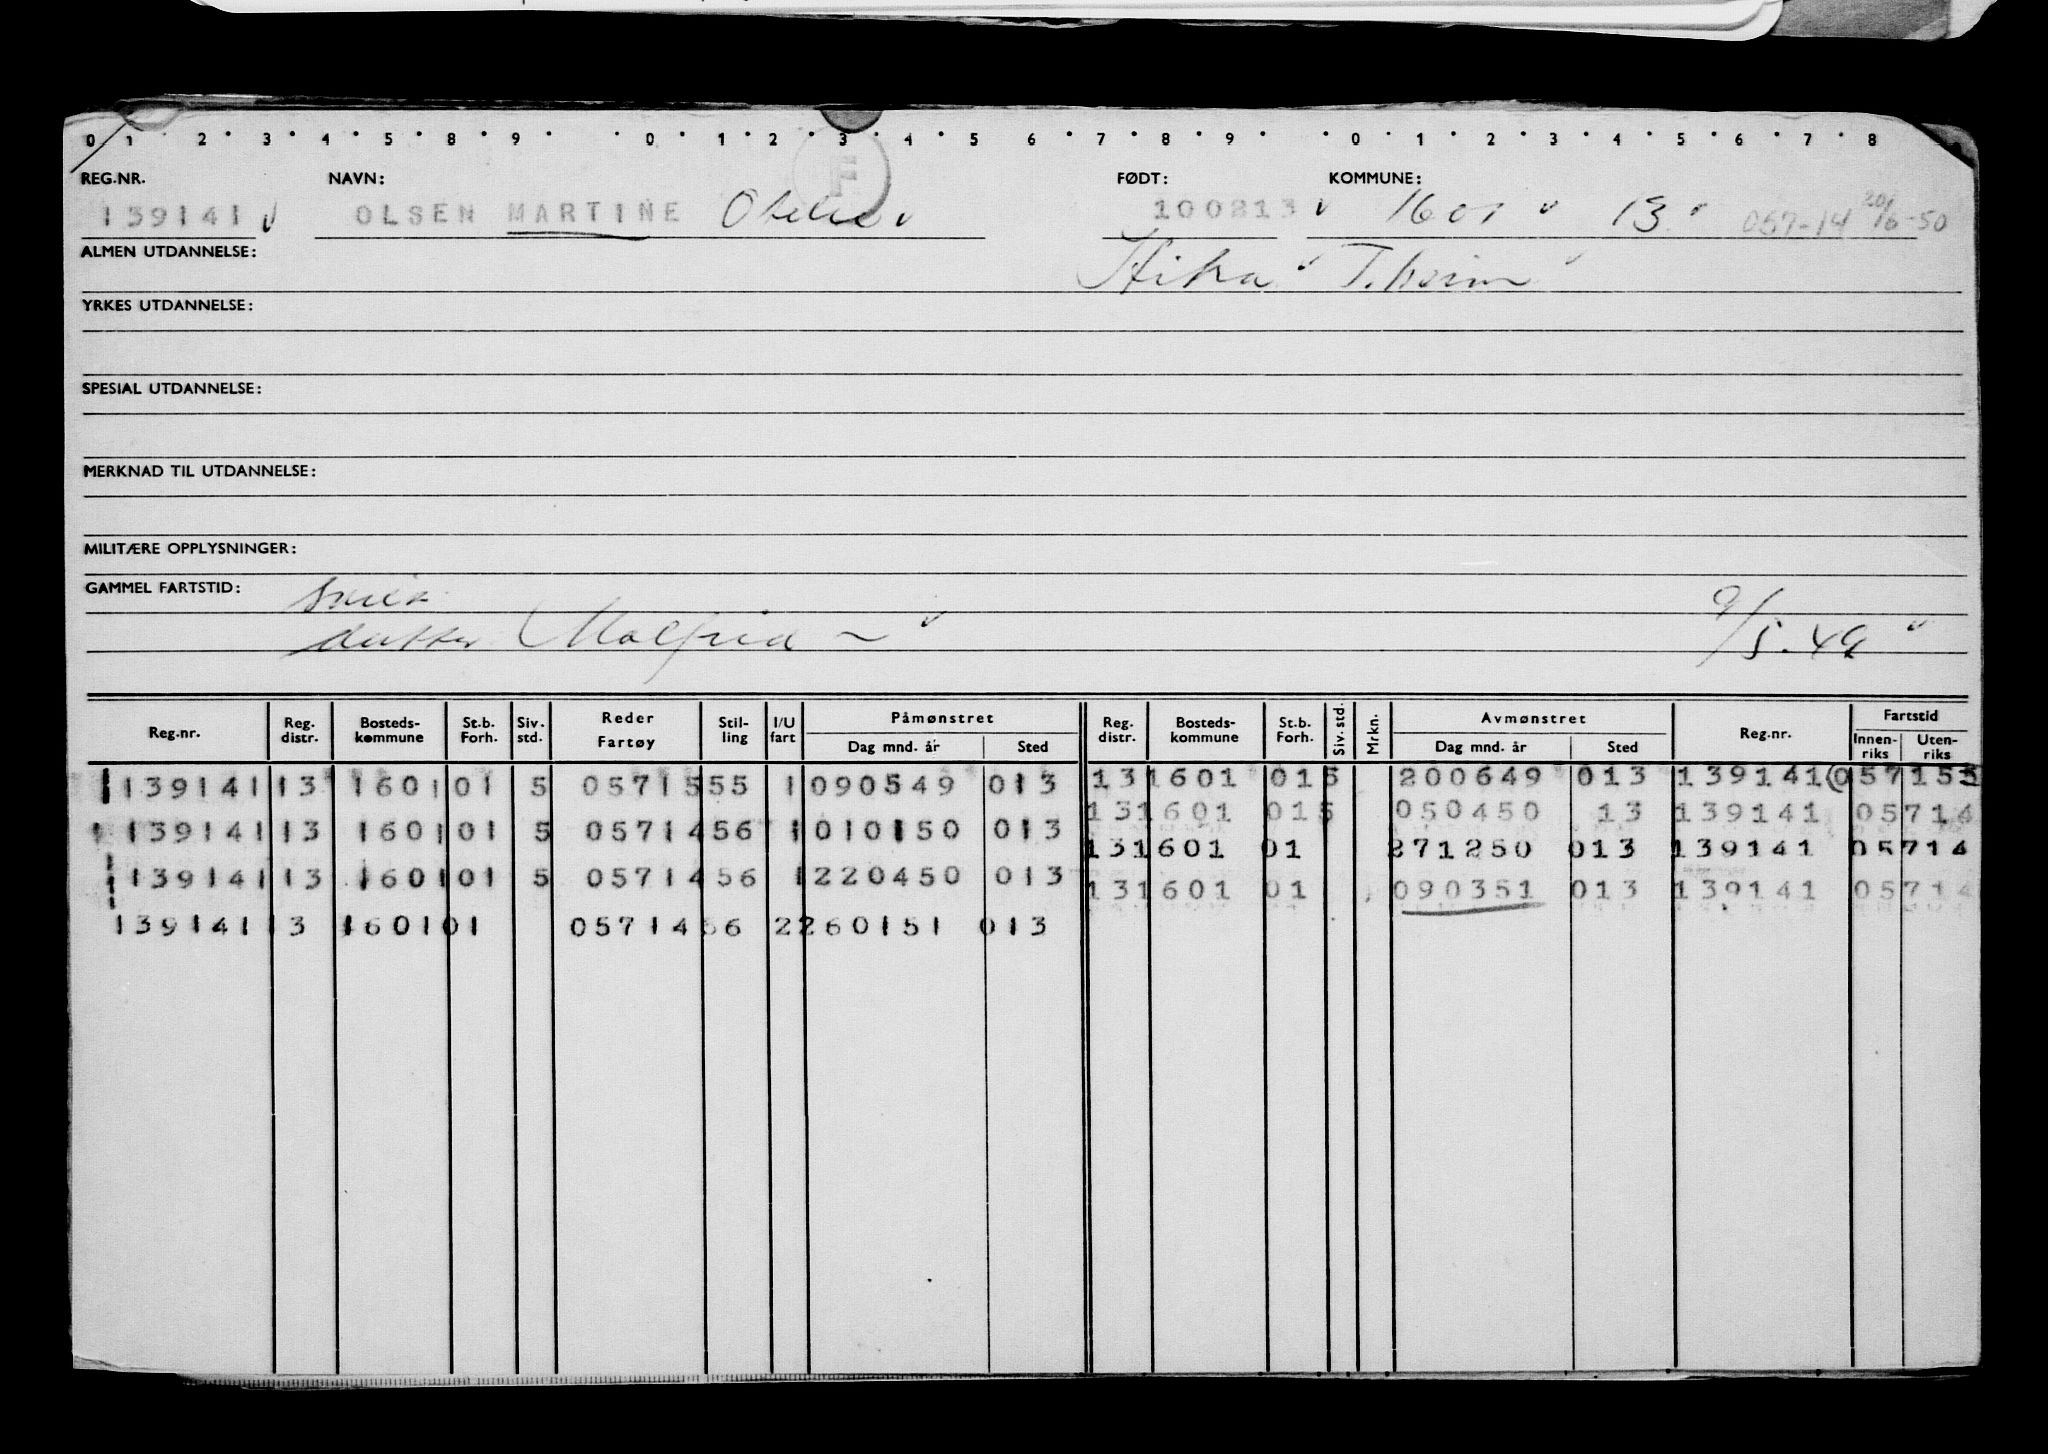 0 1 2 3 4 5 8 9 0 1 2 3 4 5 6 7 8 9 0 1 2 3 4 5 6 7 8
F
REG.NR. NAVN: FØDT: KOMMUNE:
139141 OLSEN MARTINE 100213 1601 13 057-14 16-50
ALMEN UTDANNELSE: Hitra T.heim
YRKES UTDANNELSE:
SPESIAL UTDANNELSE:
MERKNAD TIL UTDANNELSE:
MILITÆRE OPPLYSNINGER:
GAMMEL FARTSTID:
datter Malfrid 9/5.49
Reg.nr. Reg. distr. Bosteds- kommune St.b. Forh. Siv. std. Reder Fartøy Stil- ling I/U fart Påmønstret Dag mnd. år Sted Reg. distr. Bosteds- kommune St.b. Forh. Siv. std. Mrkn. Avmønstret Dag mnd. år Sted Reg.nr. Fartstid Innen- riks Uten- riks
139141 13 1601 01 5 05715 55 1 090549 013 13 1601 01 5 200649 013 139141 057155
13 1601 01 5 050450 13 139141 05714
139141 13 1601 01 5 05714 56 1 010150 013
13 1601 01 271250 013 139141 05714
139141 13 1601 01 5 05714 56 1 220450 013
13 1601 01 090351 013 139141 05714
139141 13 1601 01 05714 56 2 260151 013